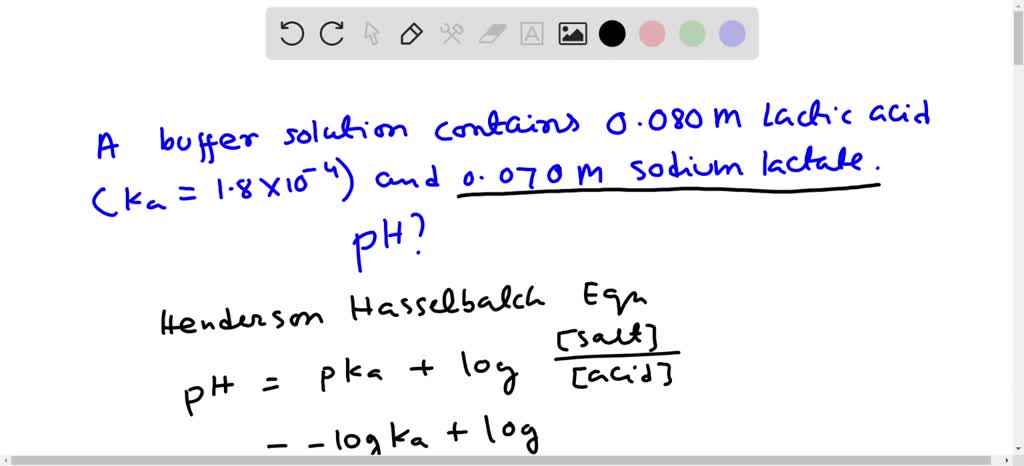 A buffer solution contains 0.080 M Lactic acid
(Ka = 1.8×10⁻⁴) and 0.070 M sodium lactate.
pH?
Henderson Hasselbalch Eqn
pH = pKa + log [salt]/[acid]
- -logKa + log